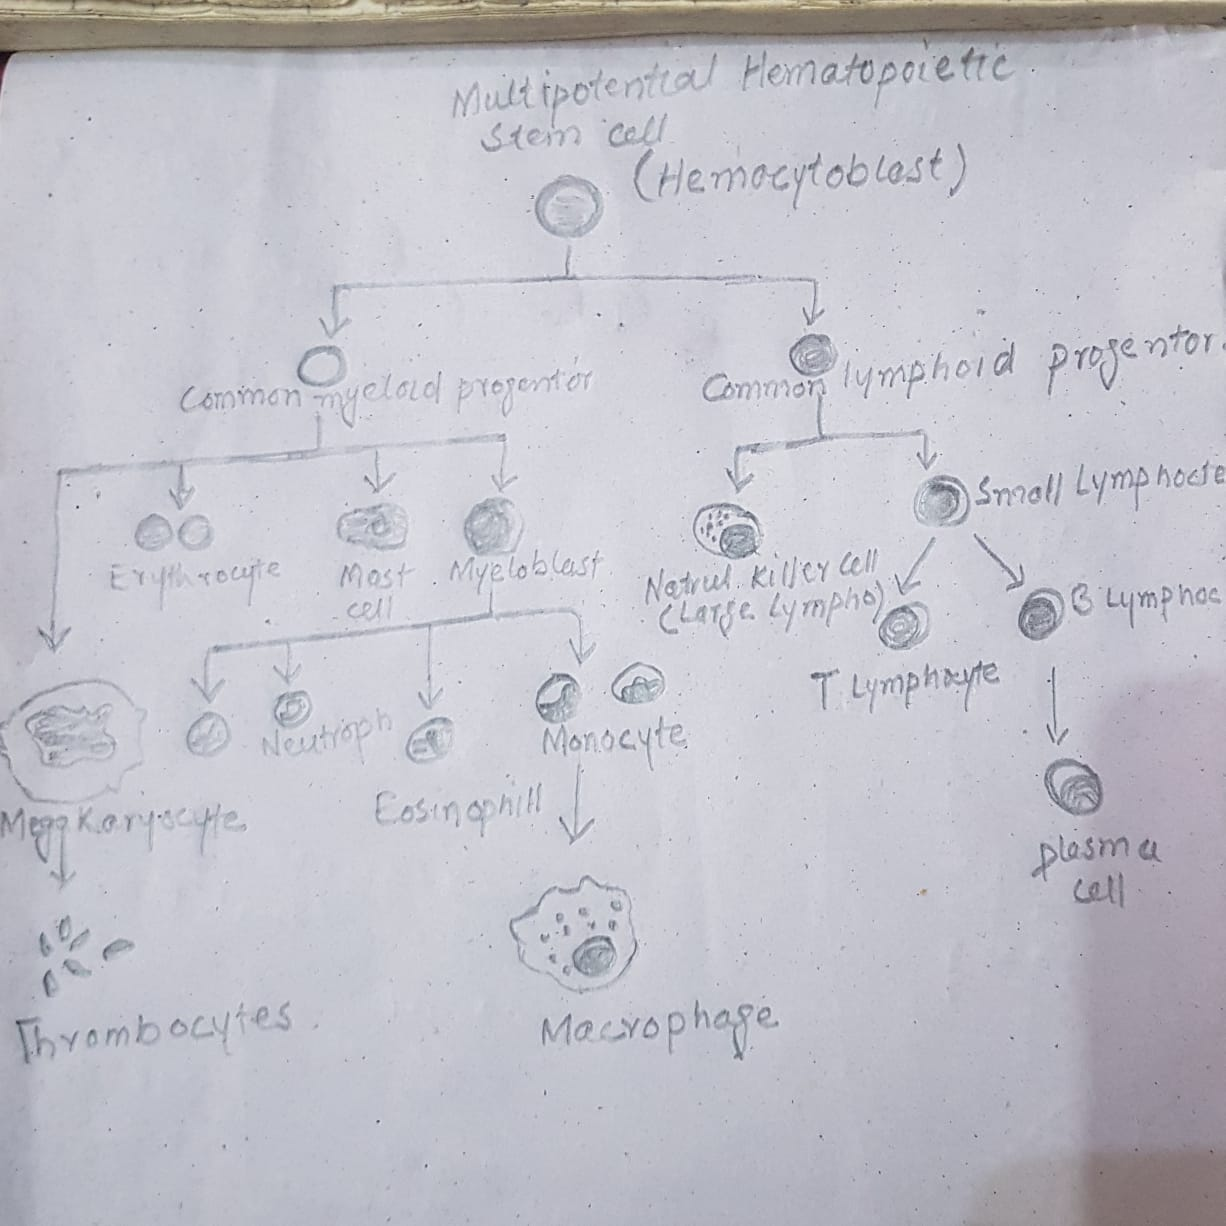 Multipotential Hematopoietic
Stem cell
(Hemocytoblast)
Common myeloid progentor
Common lymphoid progentor.
Erythrocyte
Mast
cell
Myeloblast
Natrul Killer cell
(Large Lympho)
Small Lymphocte
T Lymphocyte
B Lymphoc
Neutroph
Monocyte
Eosinophill
Megakaryocyte
plasma
cell
Thrombocytes.
Macrophage